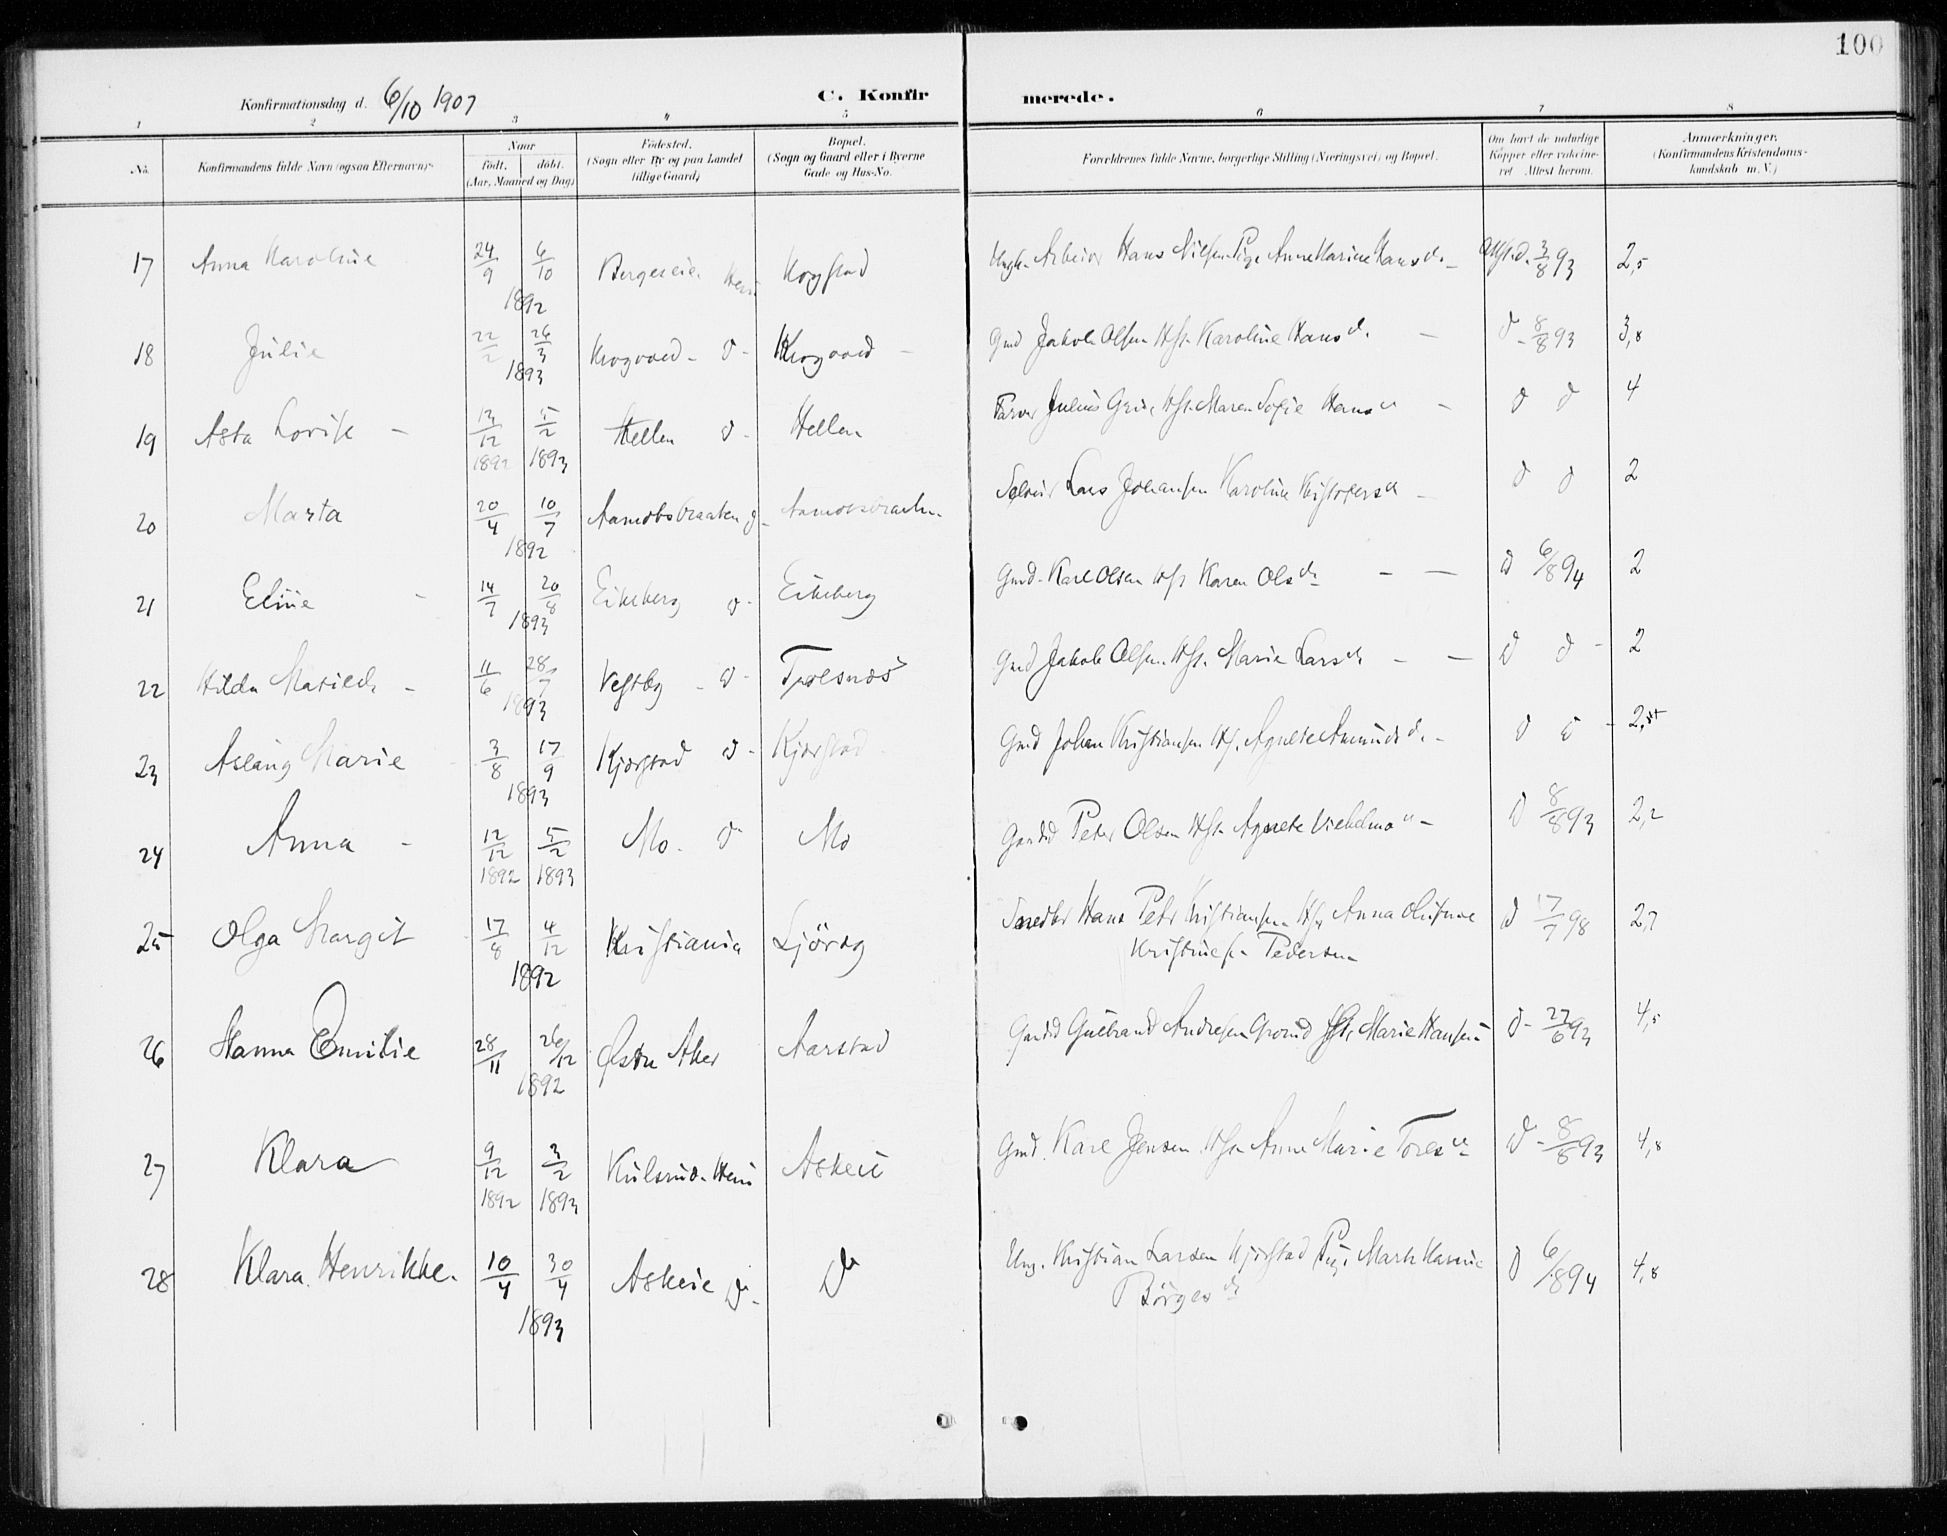 100
Konfirmationsdag d. 6/10 1907
C. Konfirmerede.
1 2 3 4 5 6 7 8
No. Konfirmandens fulde Navn (ogsaa Efternavn). Naar født. døbt. (Aar, Maaned og Dag) Födested. (Sogn eller By og paa Landet tillige Gaard) Bopæl. (Sogn og Gaard eller i Byerne Gade og Hus-No. Forældrenes fulde Navne, borgerlige Stilling (Næringsvei) og Bopæl. Om havt de naturlige Köpper eller vakcineret Attest herom. Anmærkninger. (Konfirmandens Kristendomskundskab m. V.)
17 Anna Karoline 24/9 6/10 1892 Bergeseie Krogstad Arbeider Hans Nilsen Pige Anne Karine Hansd. 3/8 93 2,5
18 Julie 22/2 26/3 1893 Krogvold d Krogvold Gmd Jakob Olsen Hst. Karoline Hansd. d 8/8 93 3,8
19 Asta Lovise 13/12 1892 5/2 1893 Hellen d Hellen Farver Julius Hst. Maren Sofie Hansd d d 4
20 Marta 20/4 10/7 1892 Aamotsbraaten Aamotsbraaten Lars Johansen Karoline Kristofersd d d 2
21 Eline 14/7 20/8 1893 Eikeberg d Eikeberg Gmd. Karl Olsen Hst Karen Olsd d 6/8 94 2
22 Hilda Matilde 11/6 28/7 1893 Vestby d Gmd Jakob Olsen Hst. Marie Larsd d d 2
23 Aslaug Marie 3/8 17/9 1893 Kjørstad d Kjørstad Gmd Johan Kristiansen Hst. Agnete Amundsd. d d 2,5
24 Anna 12/12 1892 5/2 1893 Mo d Mo Gaardbr Peter Olsen Hst. Agnete d 8/8 93 2,2
25 Olga Margit 17/8 4/12 1892 Kristiania Hans Petr Kristiansen Hst Anna d 17/7 98 2,7
Pedersen
26 Hanna Emilie 28/11 26/12 1892 Østre Aker Aarstad Gulbrand Andresen Hst. Marie Hansen d 27/6 93 4,5
27 Klara 9/12 1892 3/2 1893 Askeie Gmd. Karl Jensen Hst Anne Marie Toresd d 8/8 93 4,8
28 Klara Henrikke. 10/4 30/4 1893 Askeie d d Ung. Kristian Larsen Kjørstad Pige d 6/8 94 4,8
Börgesd